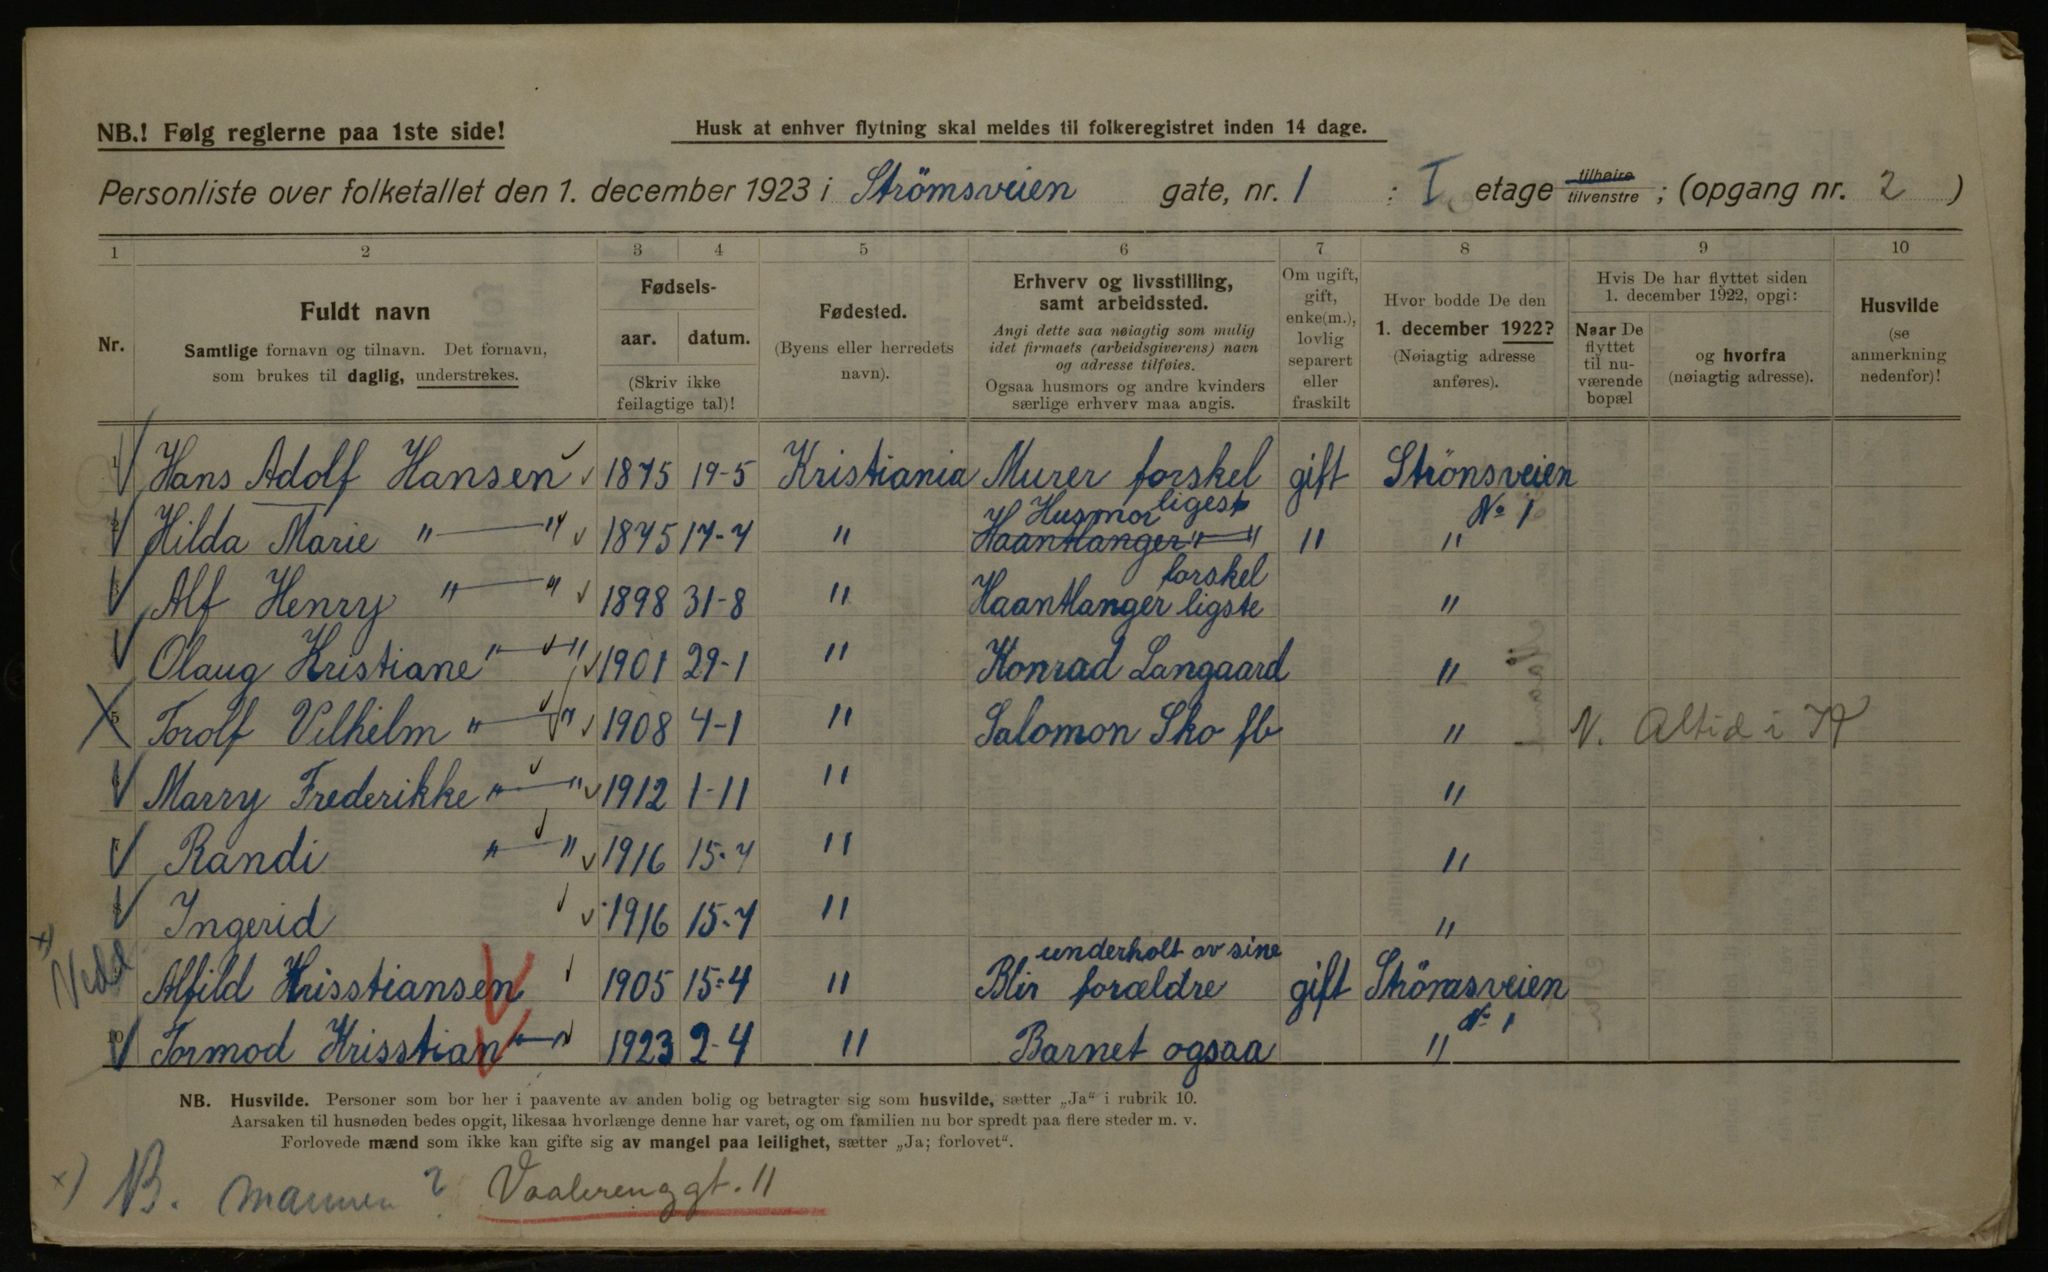 NB.! Følg reglerne paa 1ste side!
Husk at enhver flytning skal meldes til folkeregistret inden 14 dage.
Personliste over folketallet den 1. december 1923 i Strömsveien gate, nr. 1 : I etage tilhøire tilvenstre ; (opgang nr. 2 )
1 2 3 4 5 6 7 8 9 10
Nr.
Fuldt navn
Samtlige fornavn og tilnavn. Det fornavn,
som brukes til daglig, understrekes.
Fødsels-
aar. datum.
(Skriv ikke
feilagtige tal)!
Fødested.
(Byens eller herredets
navn).
Erhverv og livsstilling,
samt arbeidssted.
Angi dette saa nøiagtig som mulig
idet firmaets (arbeidsgiverens) navn
og adresse tilføies.
Ogsaa husmors og andre kvinders
særlige erhverv maa angis.
Om ugift,
gift,
enke(m.),
lovlig
separert
eller
fraskilt
Hvor bodde De den
1. december 1922?
(Nøiagtig adresse
anføres).
Hvis De har flyttet siden
1. december 1922, opgi:
Naar De
flyttet
til nu-
værende
bopæl
og hvorfra
(nøiagtig adresse).
Husvilde
(se
anmerkning
nedenfor)!
1 Hans Adolf Hansen 1875 19-5 Kristiania Murer forskel gift Strönsveien
ligest
Husmor Nº 1
2 Hilda Marie " — " 1875 17-7 " Haantlanger " — " " "
forskel
3 Alf Henry " — " 1898 31-8 " Haantlanger ligste "
Olaug Kristiane " — " 1901 29-1 " Konrad Langaard "
5 Torolf Vilhelm " — " 1908 4-1 " Salomon Sko fb " N. Altid i
6 Marry Frederikke " — " 1912 1-11 " "
7 Randi " — " 1916 15-7 " "
8 Ingerid 1916 15-7 " "
x)
underholt av sine
Alfild Krisstiansen 1905 15-4 " Blir forældre gift Strömsveien
Nº 1
10 Tormod Krisstian " — " 1923 2-4 " Barnet ogsaa "
NB. Husvilde. Personer som bor her i paavente av anden bolig og betragter sig som husvilde, sætter „Ja“ i rubrik 10.
Aarsaken til husnøden bedes opgit, likesaa hvorlænge denne har varet, og om familien nu bor spredt paa flere steder m. v.
Forlovede mænd som ikke kan gifte sig av mangel paa leilighet, sætter „Ja; forlovet“.
x) NB. mannen? Vaalerenggt. 11